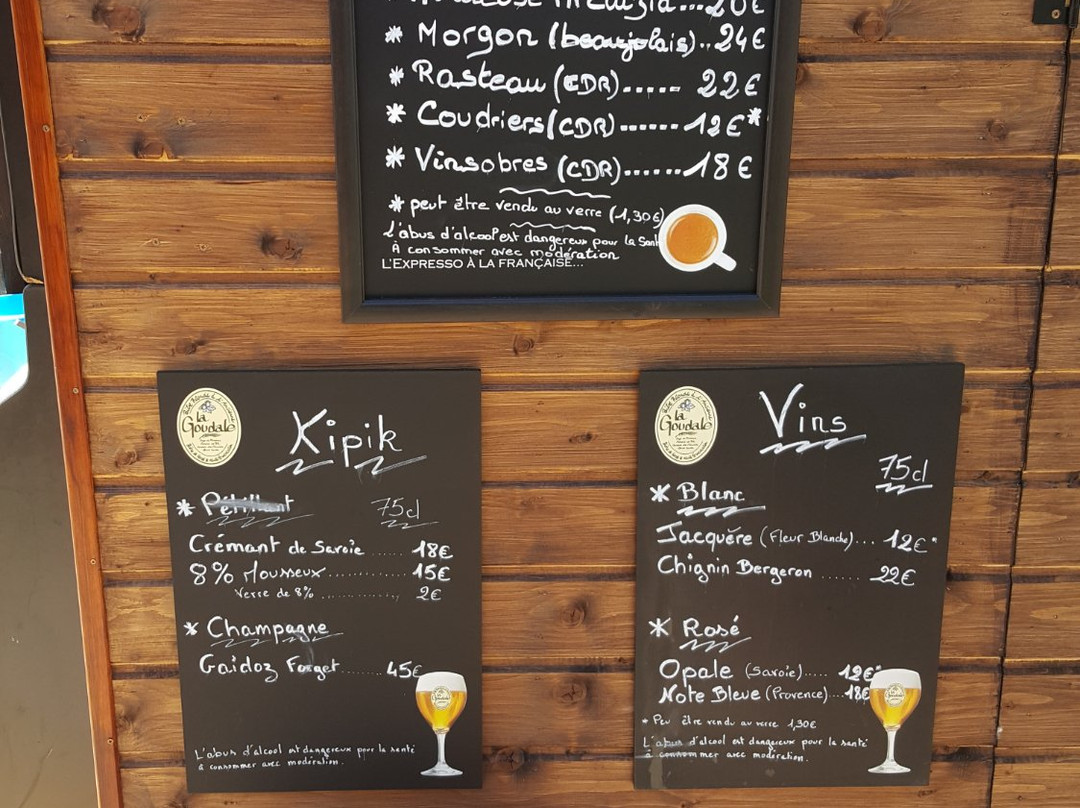 20€
* Morgon (beaujolais)..24€
* Rasteau (CDR)..... 22€
* Coudriers (CDR)......12€*
* Vinsobres (CDR)......18€
* peut être vendu au verre (1,30€)
L'abus d'alcool est dangereux pour la Santé
À consommer avec modération
L'EXPRESSO À LA FRANÇAISE...
la Goudale
Kipik
* Pétillant 75cl
Crémant de Savoie ..... 18€
8% Mousseux............ 15€
Verre de 8% ............. 2€
* Champagne
Gaidoz Forget....... 45€
L'abus d'alcool est dangereux pour la santé
à consommer avec modération.
la Goudale
Vins
75cl
* Blanc
Jacquère (Fleur Blanche)... 12€*
Chignin Bergeron ...... 22€
* Rosé
Opale (Savoie)..... 12€*
Note Bleue (Provence)...18€
* Peu être vendu au verre 1,30€
L'abus d'alcool est dangereux pour la santé
à consommer avec modération.